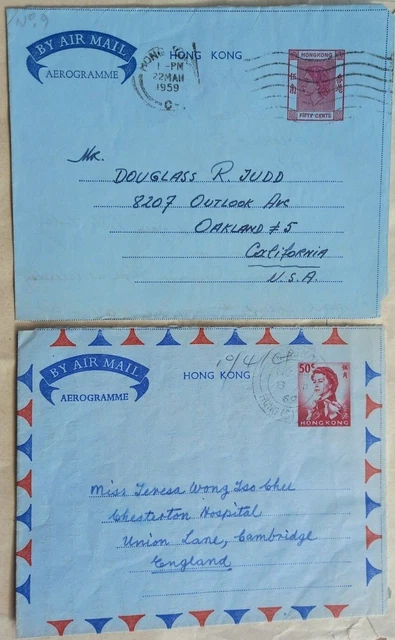 No. 9
BY AIR MAIL
AEROGRAMME
HONG KONG
HONG
1 - PM
22 MAH
1959
C
HONGKONG
FIFTY CENTS
Mr.
DOUGLASS R. JUDD
8207 OUTLOOK AVE
OAKLAND #5
California
U.S.A.
BY AIR MAIL
AEROGRAMME
HONG KONG
50¢
HONG KONG
Miss Teresa Wong Tso Chee
Chesterton Hospital
Union Lane, Cambridge
England